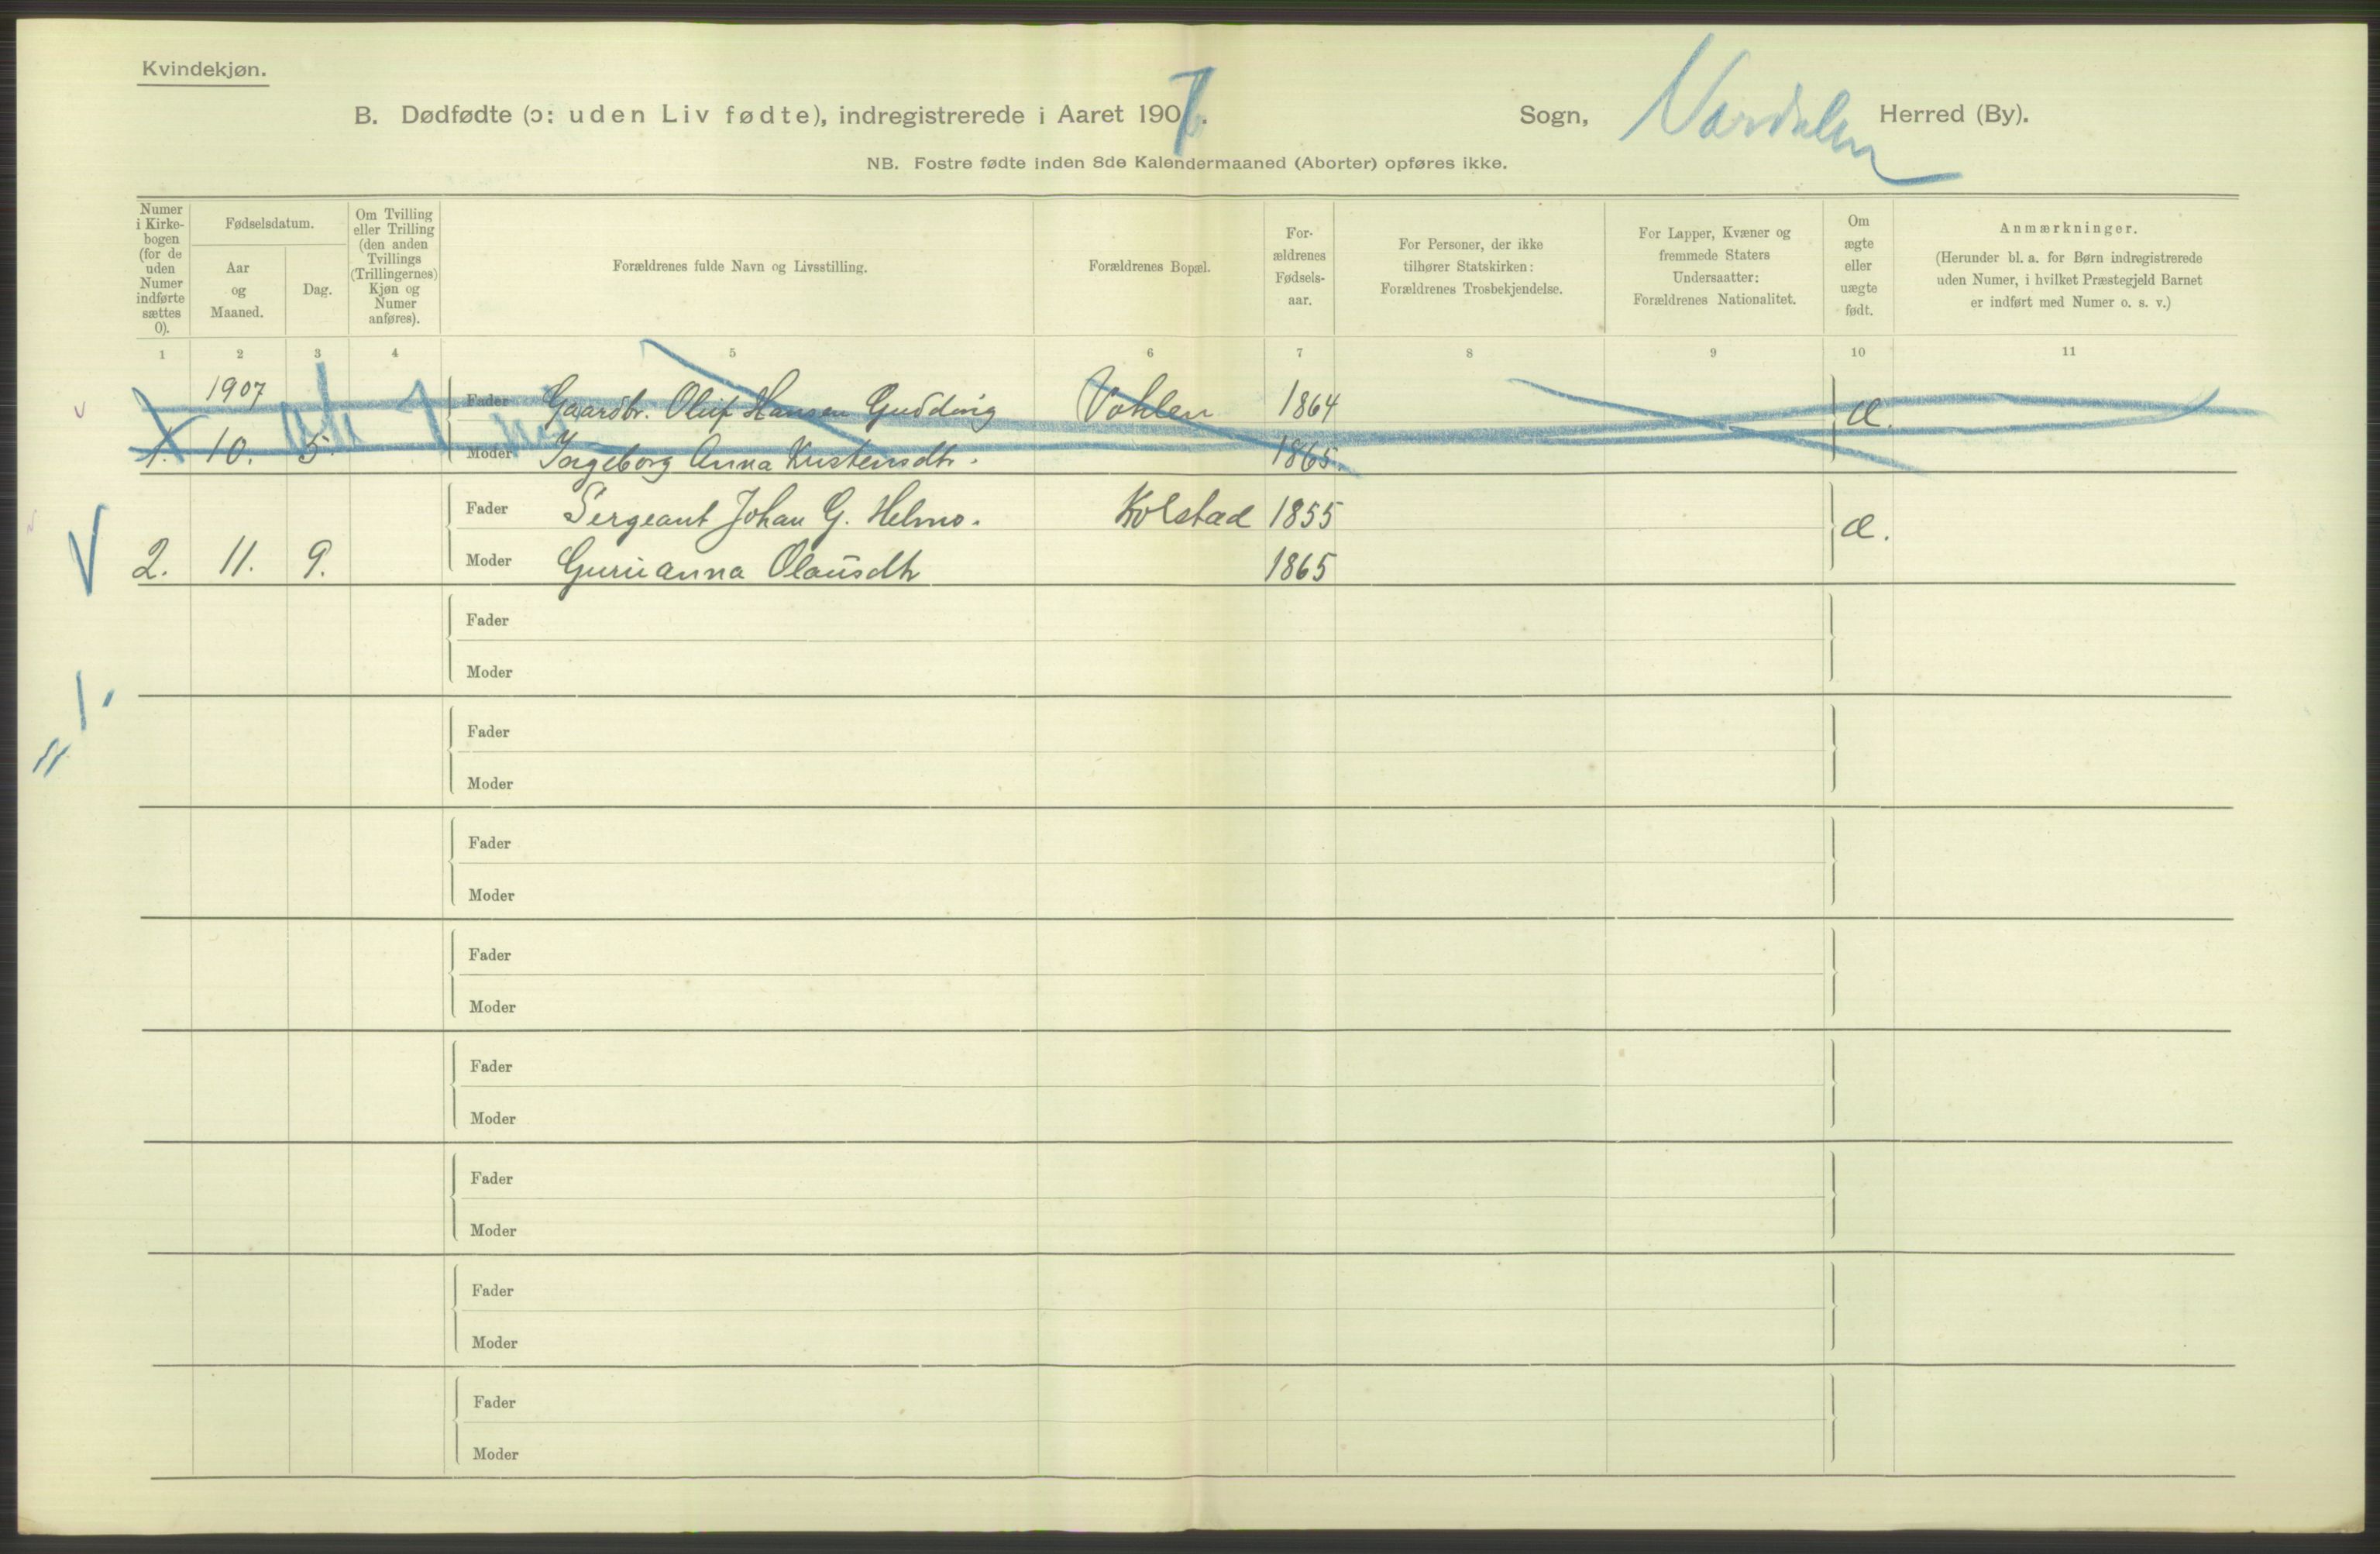 Kvindekjøn.
B. Dødfødte (ɔ: uden Liv fødte), indregistrerede i Aaret 1907.
Sogn, Værdalen Herred (By).
NB. Fostre fødte inden 8de Kalendermaaned (Aborter) opføres ikke.
Numer i Kirke-bogen (for de uden Numer indførte sættes 0).
Fødselsdatum.
Aar og Maaned.
Dag.
Om Tvilling eller Trilling (den anden Tvillings (Trillingernes) Kjøn og Numer anføres).
Forældrenes fulde Navn og Livsstilling.
Forældrenes Bopæl.
For-ældrenes Fødsels-aar.
For Personer, der ikke tilhører Statskirken: Forældrenes Trosbekjendelse.
For Lapper, Kvæner og fremmede Staters Undersaatter: Forældrenes Nationalitet.
Om ægte eller uægte født.
Anmærkninger.
(Herunder bl. a. for Børn indregistrerede uden Numer, i hvilket Præstegjeld Barnet er indført med Numer o. s. v.)
1 2 3 4 5 6 7 8 9 10 11
1907 Fader Gaardbr. Oluf Hansen Gudding Vohlen 1864 æ.
1. 10. 5. Moder Ingeborg Anna Kristensdtr. 1865.
Fader Sergeant Johan G. Helmo. Kolstad 1855 æ.
2. 11. 9. Moder Guruanna Olausdtr 1865
Fader
Moder
Fader
Moder
Fader
Moder
Fader
Moder
Fader
Moder
Fader
Moder
Fader
Moder
Fader
Moder